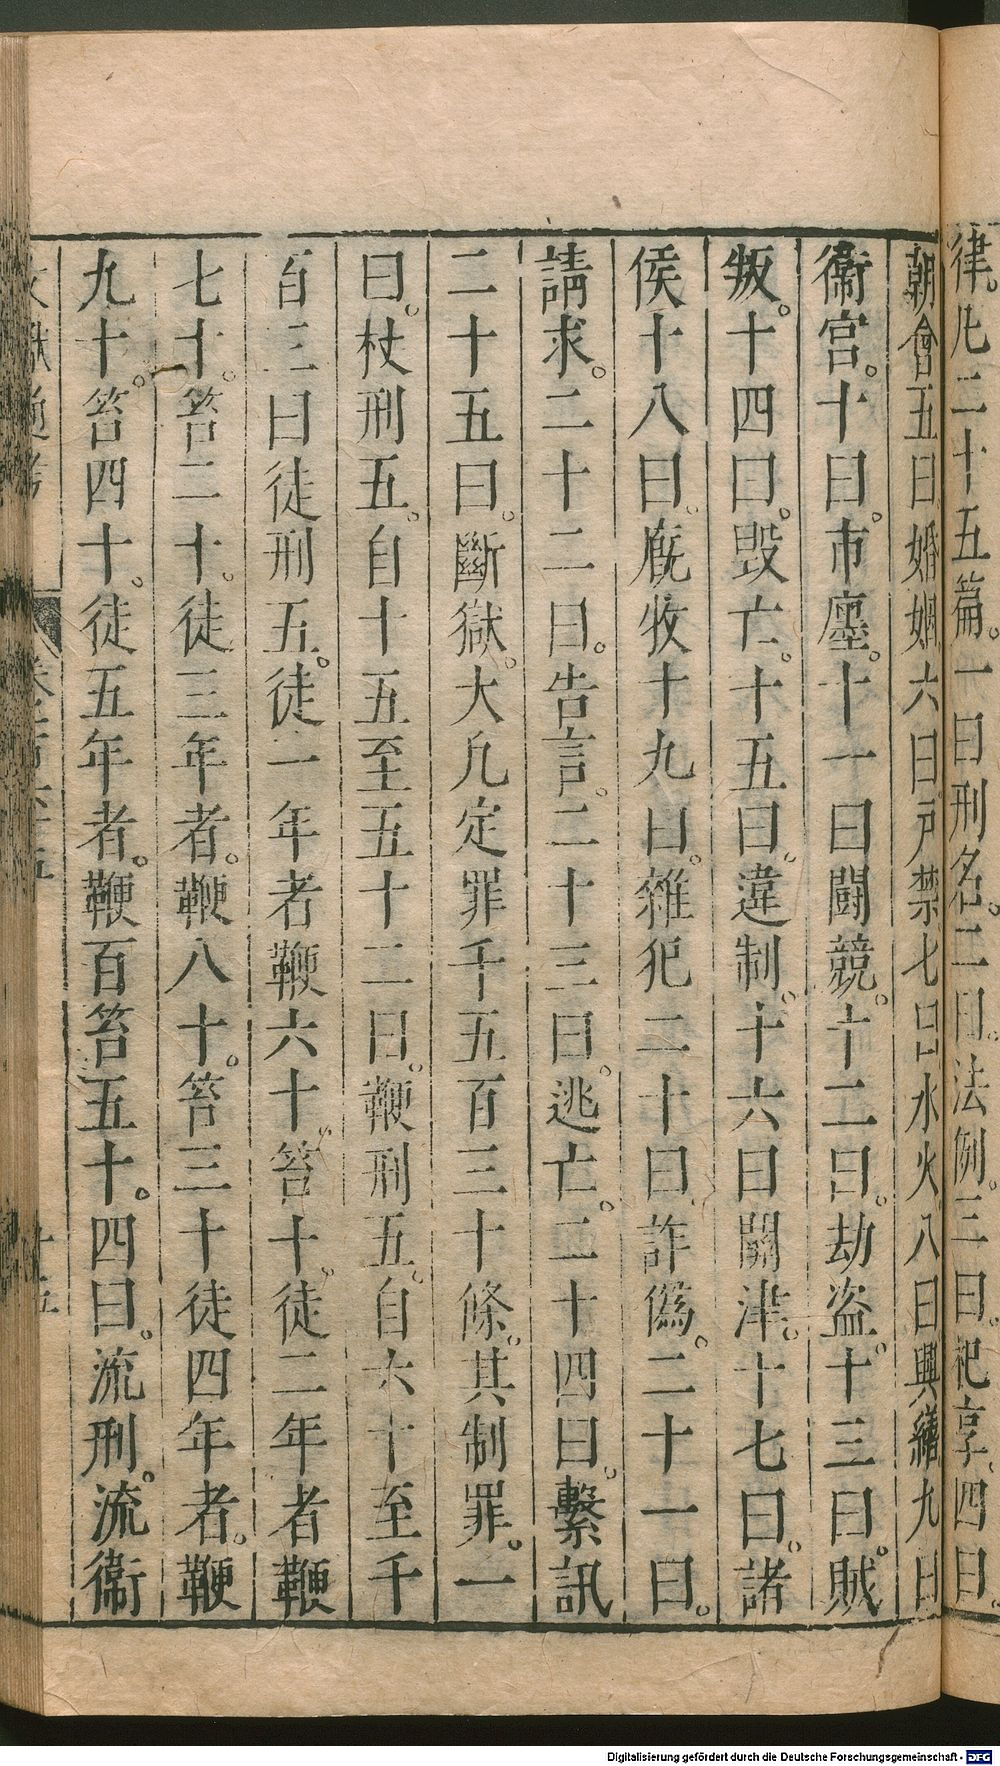 律。凡二十五篇。一曰刑名。二曰。法例。三曰。祀享。四曰。
朝會五曰婚姻六曰戸禁七曰水火八曰興繕九曰
衞宮。十曰。市廛。十一曰鬪競。十二曰。劫盜。十三曰。賊
叛。十四曰。毁亡。十五曰。違制。十六曰關津。十七曰。諸
侯十八曰。廐收十九曰。雜犯二十曰。詐僞。二十一曰。
請求。二十二曰。告言。二十三曰。逃亡。二十四曰。繫訊
二十五曰。斷獄。大凡定罪千五百三十條。其制罪。一
曰。杖刑五。自十五至五十二曰。鞭刑五。自六十至千
百三曰徒刑五。徒一年者鞭六十。笞十。徒二年者鞭
七十。笞二十。徒三年者。鞭八十。笞三十徒四年者。鞭
九十。笞四十。徒五年者。鞭百笞五十。四曰。流刑。流衞
文獻通考 十五
Digitalisierung gefördert durch die Deutsche Forschungsgemeinschaft - DFG